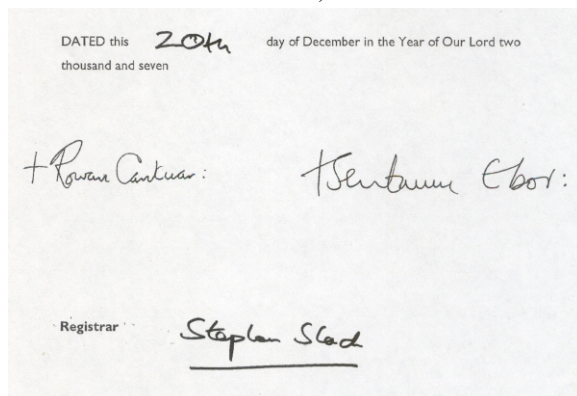 DATED this 20th day of December in the Year of Our Lord two
thousand and seven
+ Rowan Cantuar: + Sentamu Ebor:
Registrar Stephen Slack